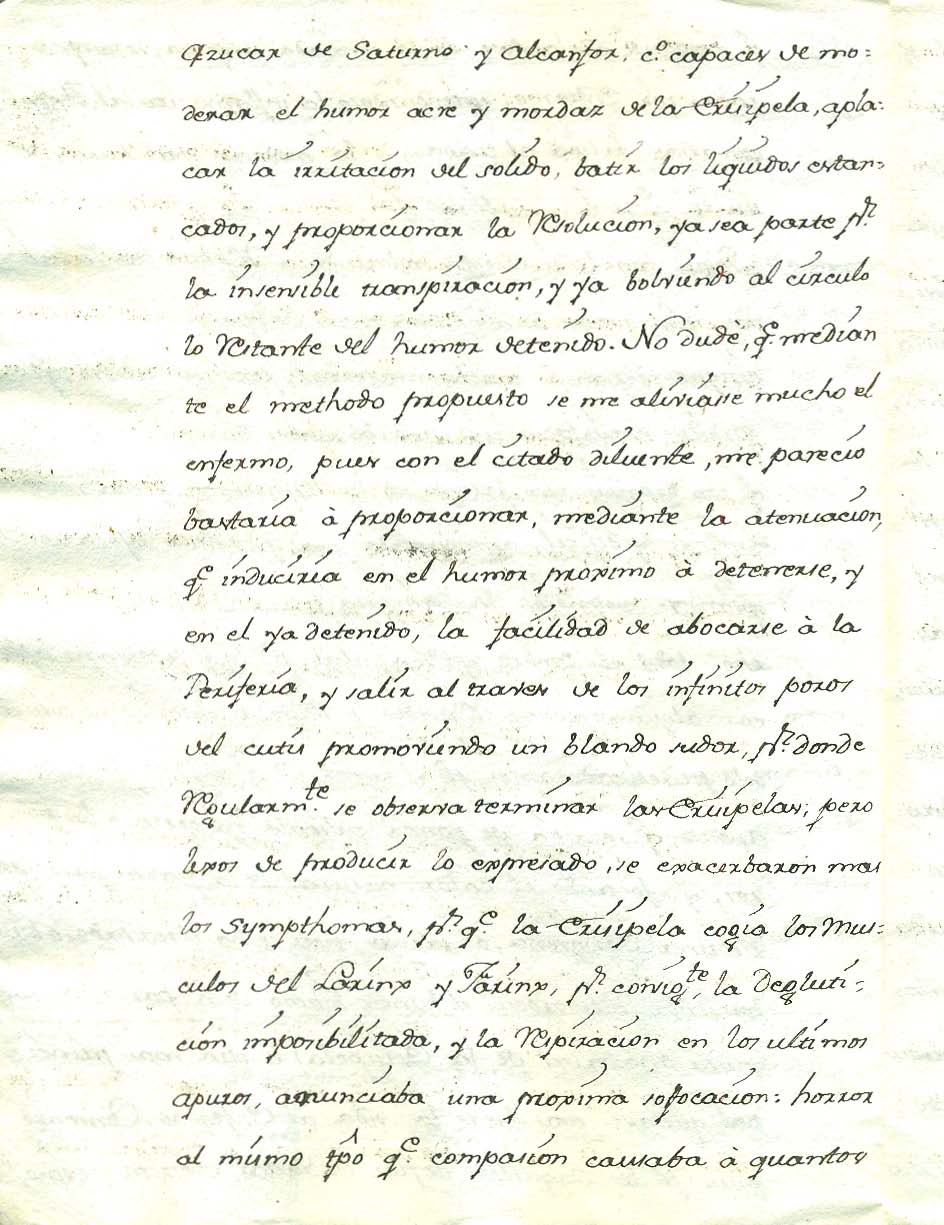 Azucar de Saturno y Alcanfor, c.º capaces de mo=
derar el humor acre y mordaz de la Erisipela, apla=
car la irritacion del solido, batir los liquidos estan=
cados, y proporcionar la Resolucion, ya sea parte p.r
la insensible transpiracion, y ya bolviendo al circulo
lo Restante del humor detenido. No dudè, q.e median
te el methodo propuesto se me aliviasse mucho el
enfermo, pues con el citado diluente, me pareció
bastaria à proporcionar, mediante la atenuacion,
q.e induciria en el humor proximo à detenerse, y
en el ya detenido, la facilidad de abocarse à la
Periferia, y salir al traves de los infinitos poros
del cutis promoviendo un blando sudor, p.r donde
Regularm.te se observa terminar las Erisipelas; pero
lexos de producir lo expresado, se exacerbaron mas
los Sympthomas, p.r q.e la Erisipela cogia los Mus=
culos del Larinx y Farinx, p.r consig.te, la Degluti=
cion imposibilitada, y la Respiracion en los ultimos
apuros, anunciaba una proxima sofocacion: horror
al mismo tpo q.e compasion causaba à quantos